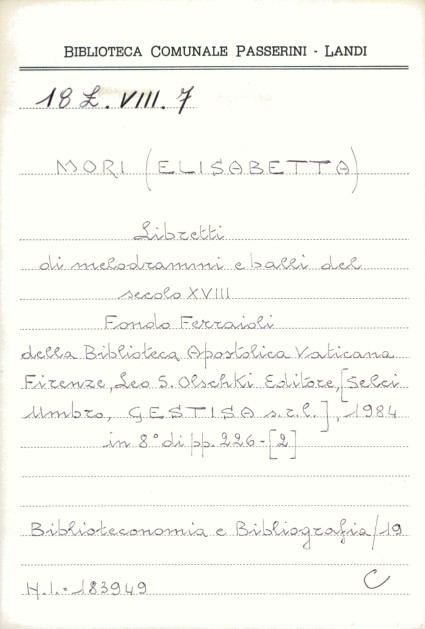 BIBLIOTECA COMUNALE PASSERINI - LANDI
18 L. VIII. 7
MORI (ELISABETTA)
Libretti
di melodrammi e balli del
secolo XVIII
Fondo Ferraioli
della Biblioteca Apostolica Vaticana
Firenze, Leo S. Olschki Editore, [Selci
Umbro, GESTISA s.r.l.], 1984
in 8° di pp. 226-[2]
Biblioteconomia e Bibliografia/19
N.I. = 183949
C